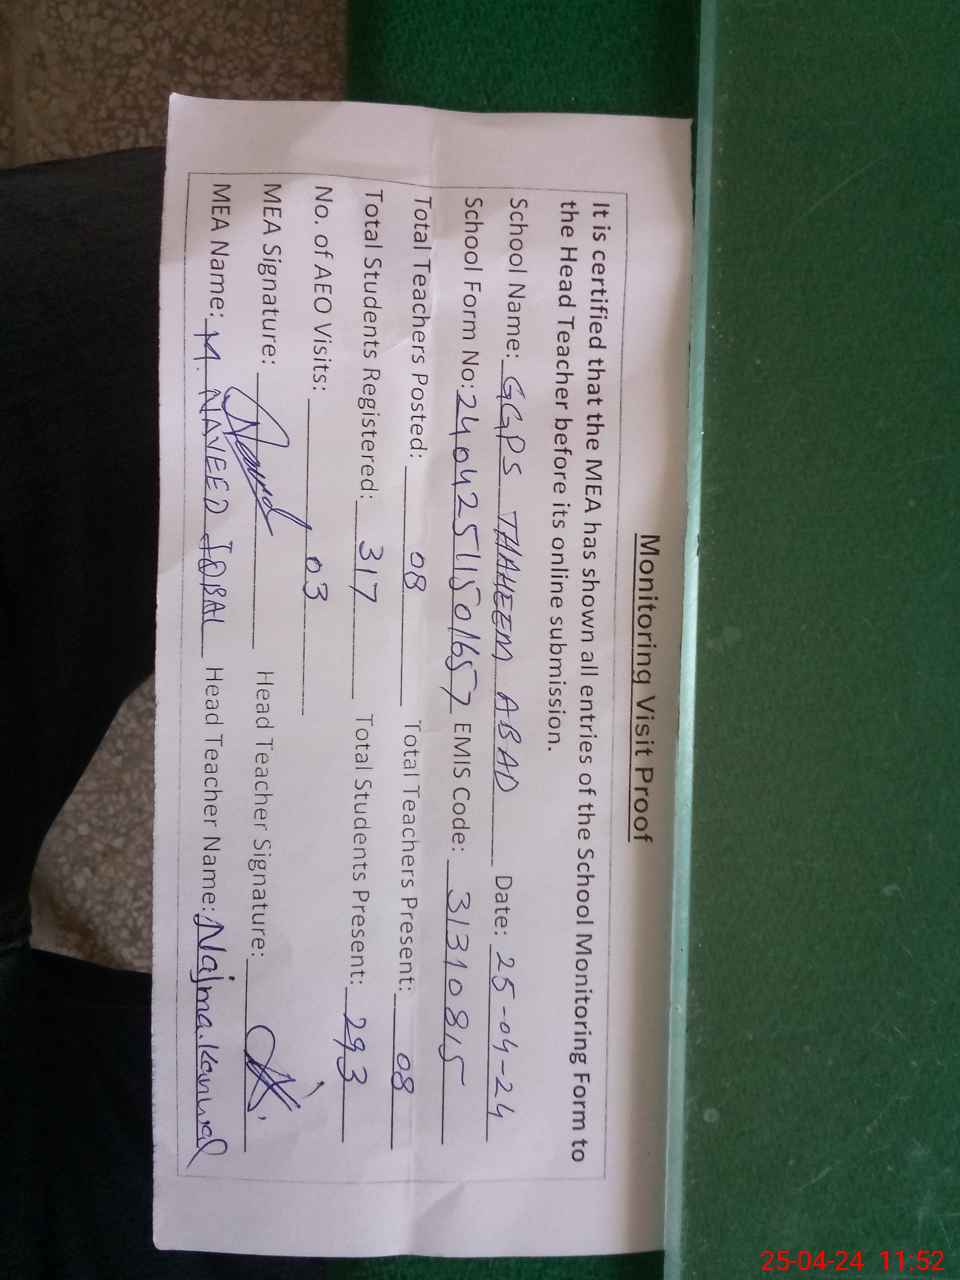 Monitoring Visit Proof
It is certified that the MEA has shown all entries of the School Monitoring Form to
the Head Teacher before its online submission.
School Name: GGPS THAHEEM ABAD Date: 25-04-24
School Form No: 24042511501657 EMIS Code: 31310815
Total Teachers Posted: 08 Total Teachers Present: 08
Total Students Registered: 317 Total Students Present: 293
No. of AEO Visits: 03
MEA Signature: Head Teacher Signature:
MEA Name: M. NAVEED IQBAL Head Teacher Name: Najma Kanwal
25-04-24 11:52